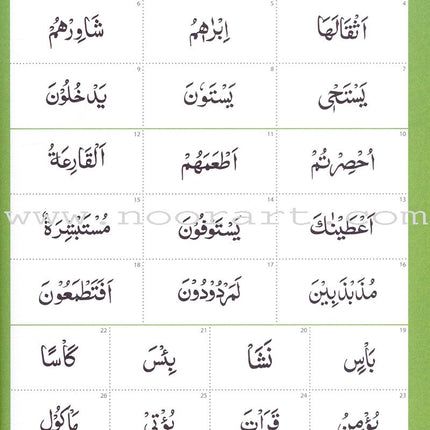 4 اَثْقَالَهَا 5 اِبْرٰهٖمُ 6 شَاوِرْهُمْ
7 يَسْتَحْيٖ 8 يَسْتَوٗنَ 9 يَدْخُلُوْنَ
10 اُحْصِرْتُمْ 11 اَطْعَمَهُمْ 12 اَلْقَارِعَةُ
13 اَعْطَيْنٰكَ 14 يَسْتَوْفُوْنَ 15 مُسْتَبْشِرَةٌ
www.noorart.com
16 مُذَبْذَبِيْنَ 17 لَمَرْدُوْدُوْنَ 18 اَفَتَطْمَعُوْنَ
19 بَأْسٍ 20 نَشَأْ 21 بِئْسَ 22 كَأْسًا
23 يُؤْمِنُ 24 قَرَأْتَ 25 يُؤْتِيْ 26 مَأْكُوْلٍ